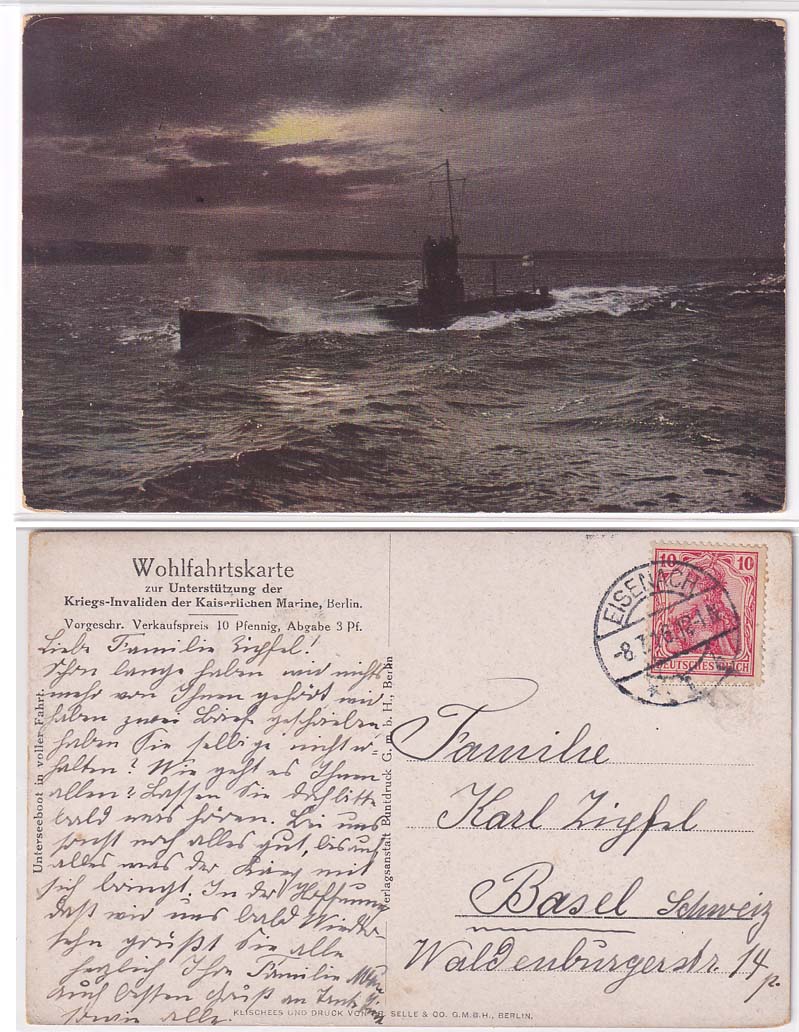 Wohlfahrtskarte
zur Unterstützung der
Kriegs-Invaliden der Kaiserlichen Marine, Berlin.
Vorgeschr. Verkaufspreis 10 Pfennig, Abgabe 3 Pf.
Liebe Familie Zipfel!
Schon lange haben wir nichts
mehr von Ihnen gehört wir
haben zwei Briefe geschrieben,
haben Sie selbige nicht er=
halten? Wie geht es Ihnen
allen? Lassen Sie doch bitte
bald was hören. Bei uns
sonst noch alles gut, bis auf
alles was der Krieg mit
sich bringt. In der Hoffnung
daß wir uns bald Wieder-
sehn grüßt Sie alle
herzlich Ihre Familie
auch besten Gruß an
sowie alle.
Unterseeboot in voller Fahrt.
Verlagsanstalt Buntdruck G. m. b. H., Berlin
EISENACH
-8.7.16.12-1
10 10
DEUTSCHES REICH
Familie
Karl Zipfel
Basel Schweiz
Waldenburgerstr 14
p.
KLISCHEES UND DRUCK VON DR. SELLE & CO. G.M.B.H., BERLIN.